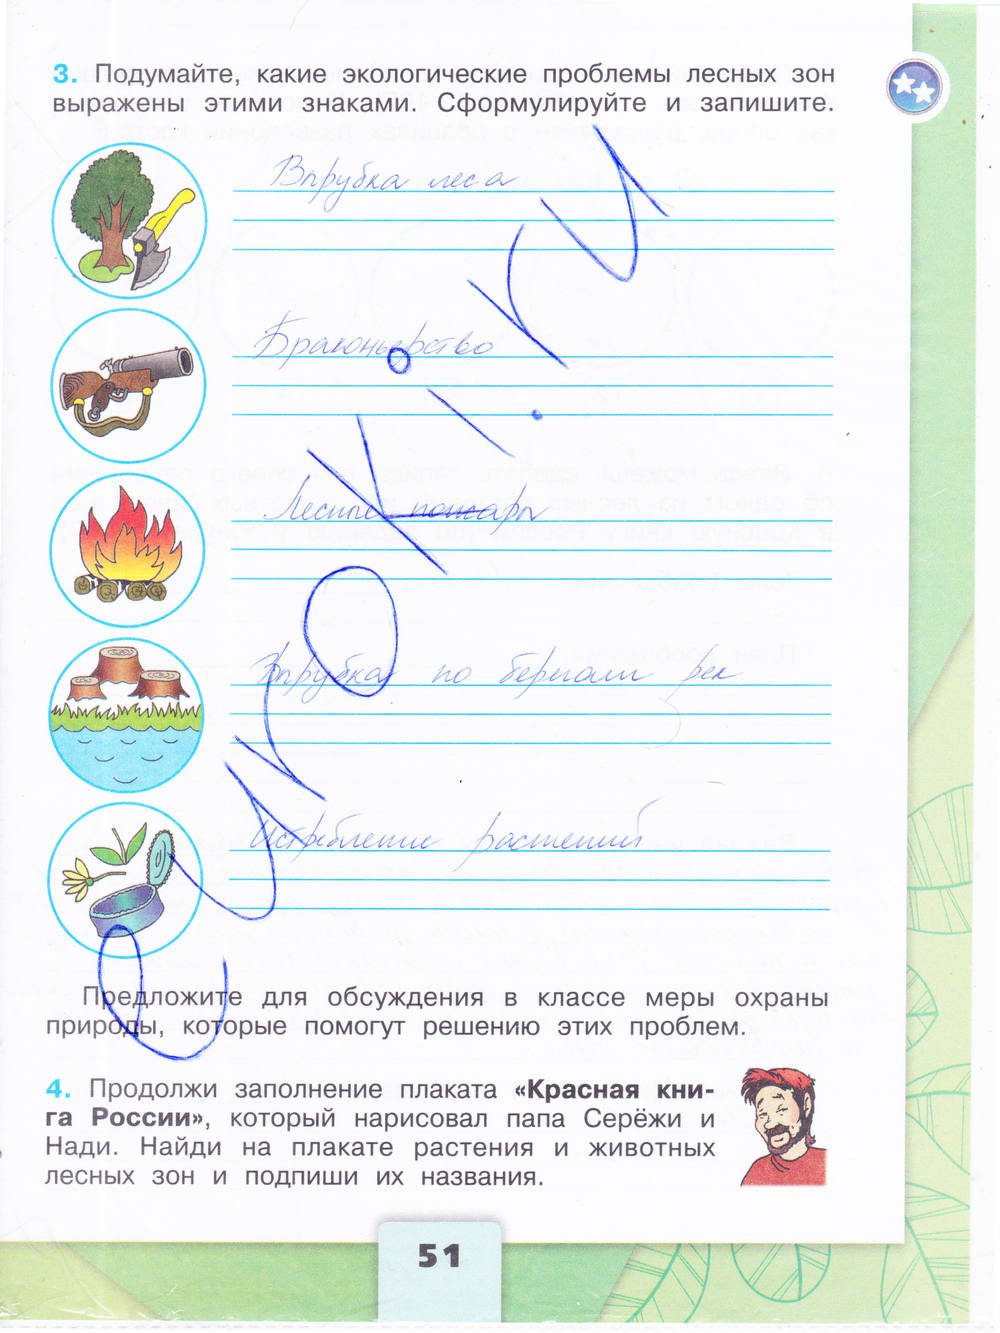 3. Подумайте, какие экологические проблемы лесных зон
выражены этими знаками. Сформулируйте и запишите.
Вырубка леса
Браконьерство
Лесные пожары
Вырубка по берегам рек
Истребление растений
Предложите для обсуждения в классе меры охраны
природы, которые помогут решению этих проблем.
4. Продолжи заполнение плаката «Красная кни-
га России», который нарисовал папа Серёжи и
Нади. Найди на плакате растения и животных
лесных зон и подпиши их названия.
51